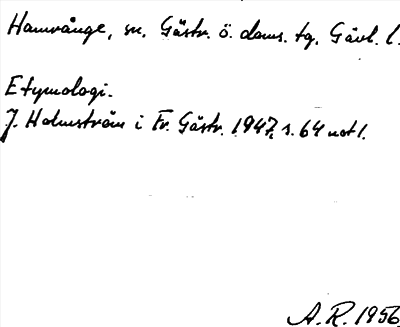 Hamrånge, sn. Gästr. ö. doms. tg. Gävl. l.
Etymologi.
J. Holmström i Fr. Gästr. 1947, s. 64 not 1.
A. R. 1956